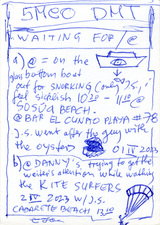 5MEO DMT
WAITING FOR /@
a) /@ = on the
glass bottom boat
out for SNORKLING (only J.S.,
feet selfish 1030 - 1130 @
SOSUA BEACH.
@ BAR EL CUNTO PLAYA #78
J.S. went after the guy with
the oyster
01 IV 2023
b) @ DANNY'S trying to get the
waiter's attention while watching
the KITE SURFERS
2 IV 2023 W/ J.S.
CABARETE BEACH 1310